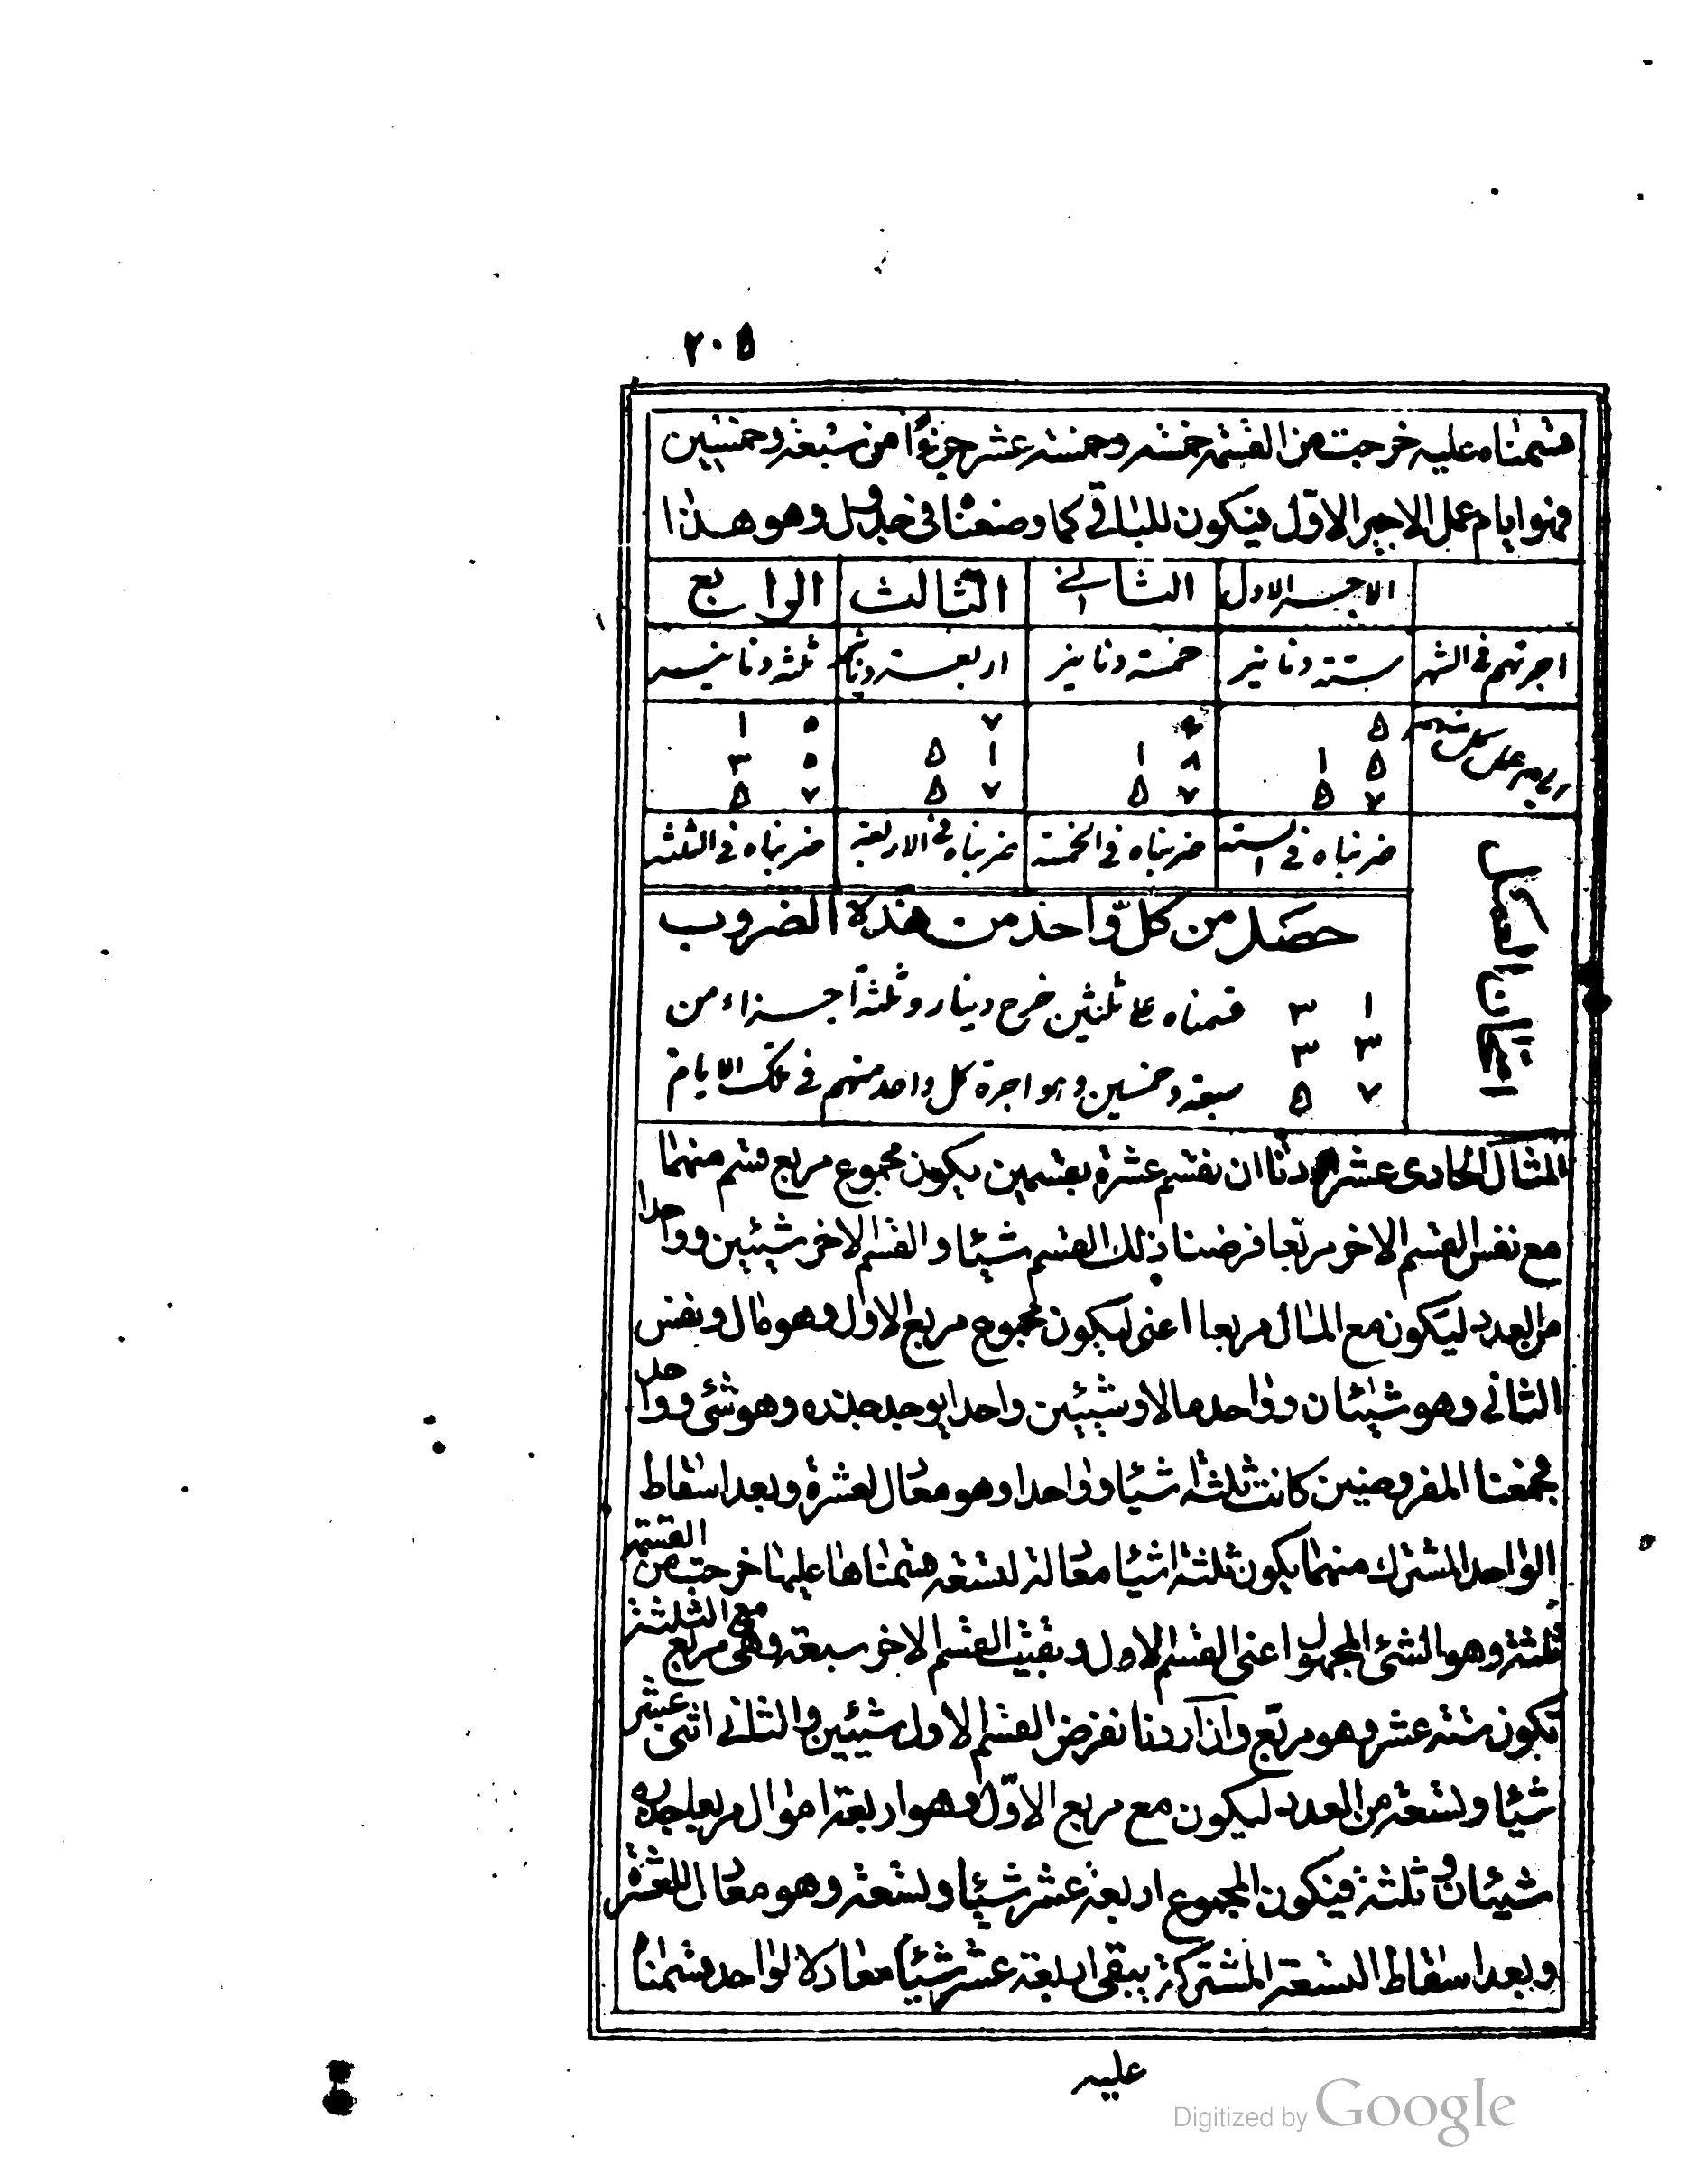 ٢٠٥
قسمناه عليه خرجت من القسمة خمسة وخمسة عشر جزءًا من سبعة وخمسين
فهو ايام عمل الاجير الاوّل فيكون للباقى كما وضعنا فى جدول وهو هذا
الاجير الاول الثانى الثالث الرابع
اجرتهم فى الشهر ستة دنانير خمسة دنانير اربعة دنانير ثلثة دنانير
عمل كل منهم
٥ ٦ ٧ ١٠
١٥ ١٨ ٥١ ٣٠
٥٧ ٥٧ ٥٧ ٥٧
امتحان العمل
ضربناه فى الستة ضربناه فى الخمسة ضربناه فى الاربعة ضربناه فى الثلثة
حصل من كلّ واحد من هذه الضروب
٣١ قسمناه على ثلثين خرج دينار وثلثة اجزاء من
٣٣
٥٧ سبعة وخمسين وهو اجرة كل واحد منهم فى تلك الايام
المثال الحادى عشر اردنا ان نقسم عشرة بقسمين يكون مجموع مربع قسم منهما
مع نفس القسم الاخر مربعا فرضنا ذلك القسم شيئا والقسم الاخر شيئين وواحدا
من العدد ليكون مع المال مربعا اعنى ليكون مجموع مربع الاول وهو مال ونفس
الثانى وهو شيئان وواحد مالا وشيئين واحدا يوجد جذره وهو شئ وواحد
فجمعنا المفروضين كانت ثلثة اشيا وواحدا وهو معادل لعشرة وبعد اسقاط
الواحد المشترك منهما يكون ثلثة اشيا معادلة لتسعة قسمناها عليها خرجت من القسمة
ثلثة وهو الشئ المجهول اعنى القسم الاول وبقيت القسم الاخر سبعة وهى مع مربع الثلثة
تكون ستة عشر وهو مربع واذا اردنا نفرض القسم الاول شيئين والثانى اثنى عشر
شيئا وتسعة من العدد ليكون مع مربع الاوّل وهو اربعة اموال مربعا جذره
شيئان وثلثة فيكون المجموع اربعة عشر شيئا وتسعة وهو معادل للعشرة
وبعد اسقاط التسعة المشتركة يبقى اربعة عشر شيئا معادلا لواحد قسمنا
عليه
Digitized by Google